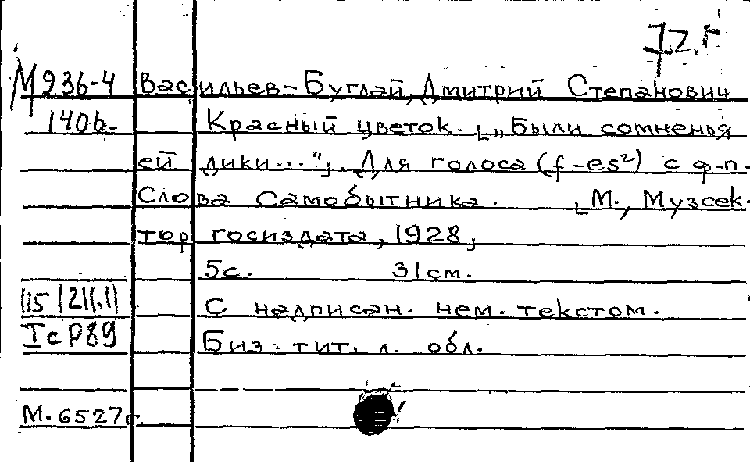 72.г
М 936-4 Васильев-Буглай, Дмитрий Степанович
140б. Красный цветок. [„Были сомненья
ей дики..."]. Для голоса (f-es²) с ф-п.
Слова Самобытника. [М., Музсек-
тор госиздата, 1928]
5с. 31см.
115/211.1) С надписан. нем. текстом.
Тс Р89 Биз тит. л. обл.
М.6527г